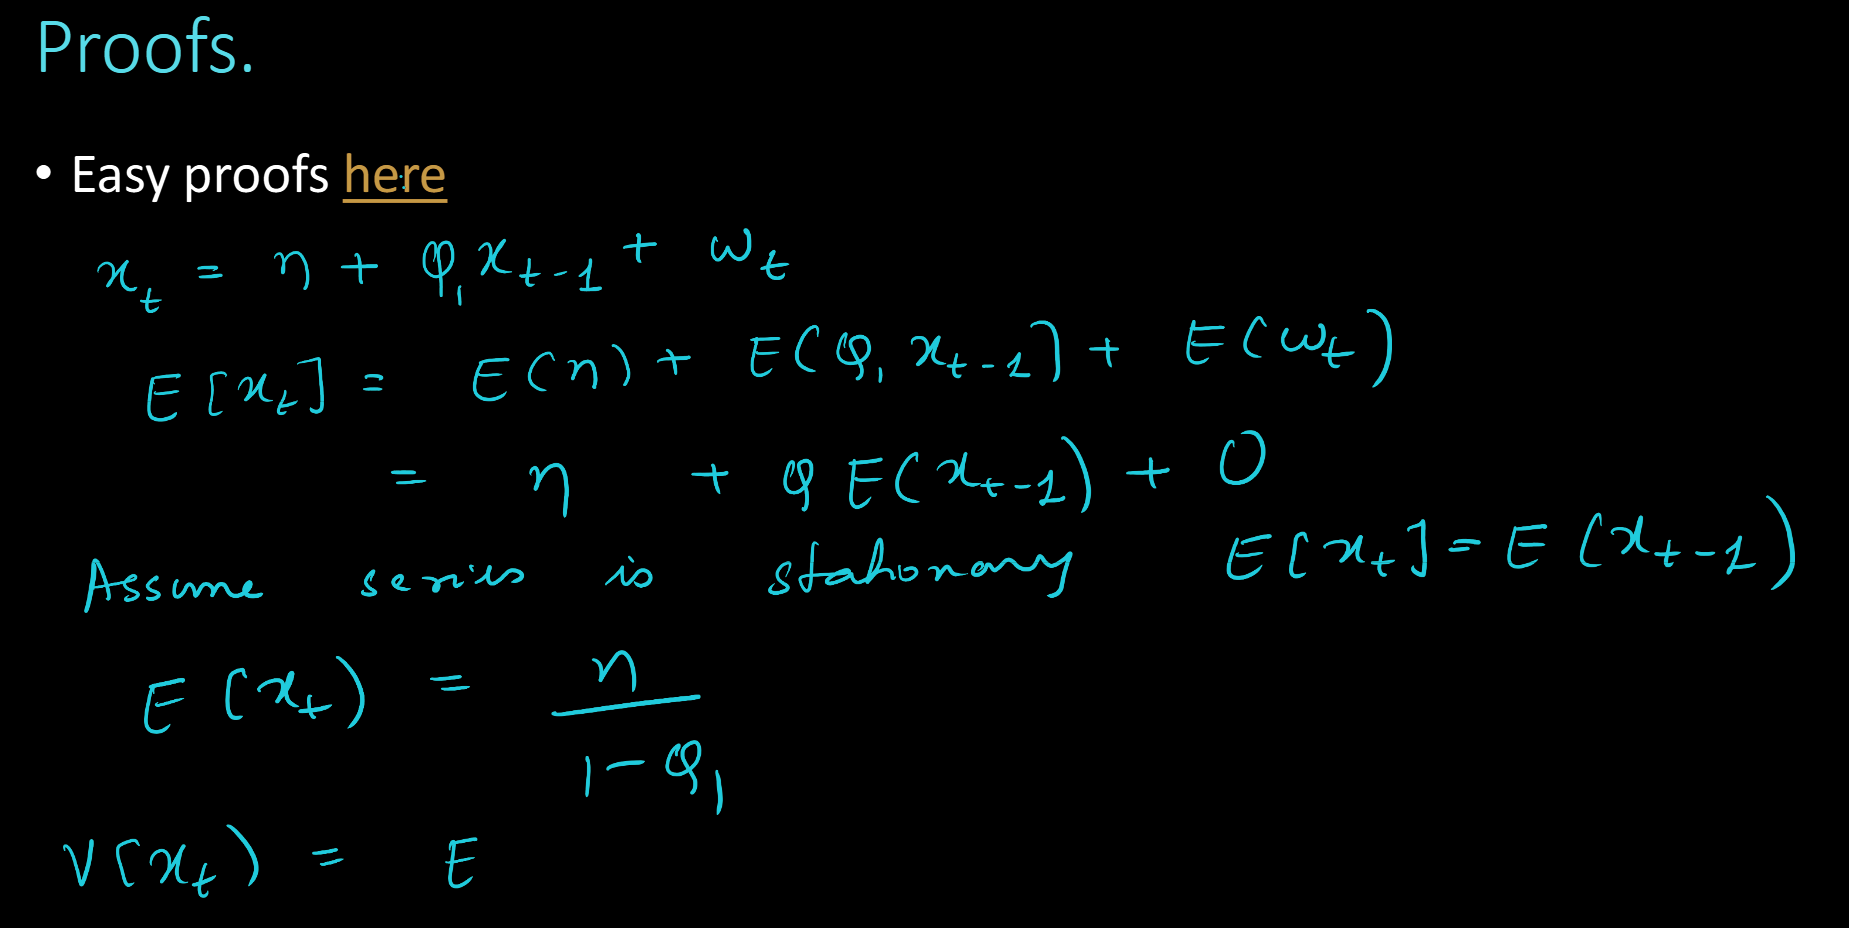 Proofs.
• Easy proofs here
x_t = η + φ_1 x_{t-1} + ω_t
E[x_t] = E(η) + E(φ_1 x_{t-1}] + E(ω_t)
= η + φ E(x_{t-1}) + 0
Assume series is stationary E[x_t] = E(x_{t-1})
E(x_t) = η / (1 - φ_1)
V[x_t) = E